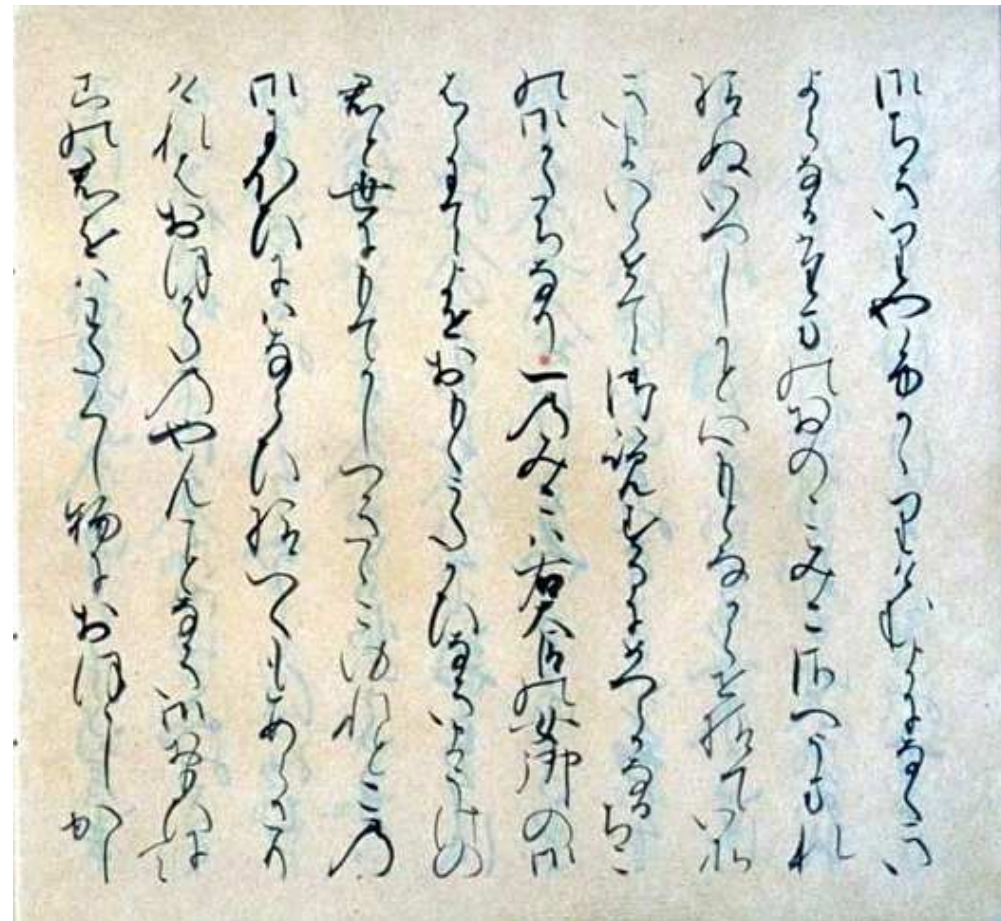 御ちきりやふかゝりけむよになくき
よらなるたまのをのこみこさへうまれ
給ぬいつしかと心もとなからせ給ていそ
きまいらせて御覧するにめつらかなるちこ
の御かたちなり一のみこは右大臣の女御の御
はらにてよせおもくうたかひなきまうけの
君と世にもてかしつきゝこゆれとこの
御にほひにはならひ給へくもあらさり
けれはおほかたのやんことなき御おもひにて
この君をはわたくし物におほしかし